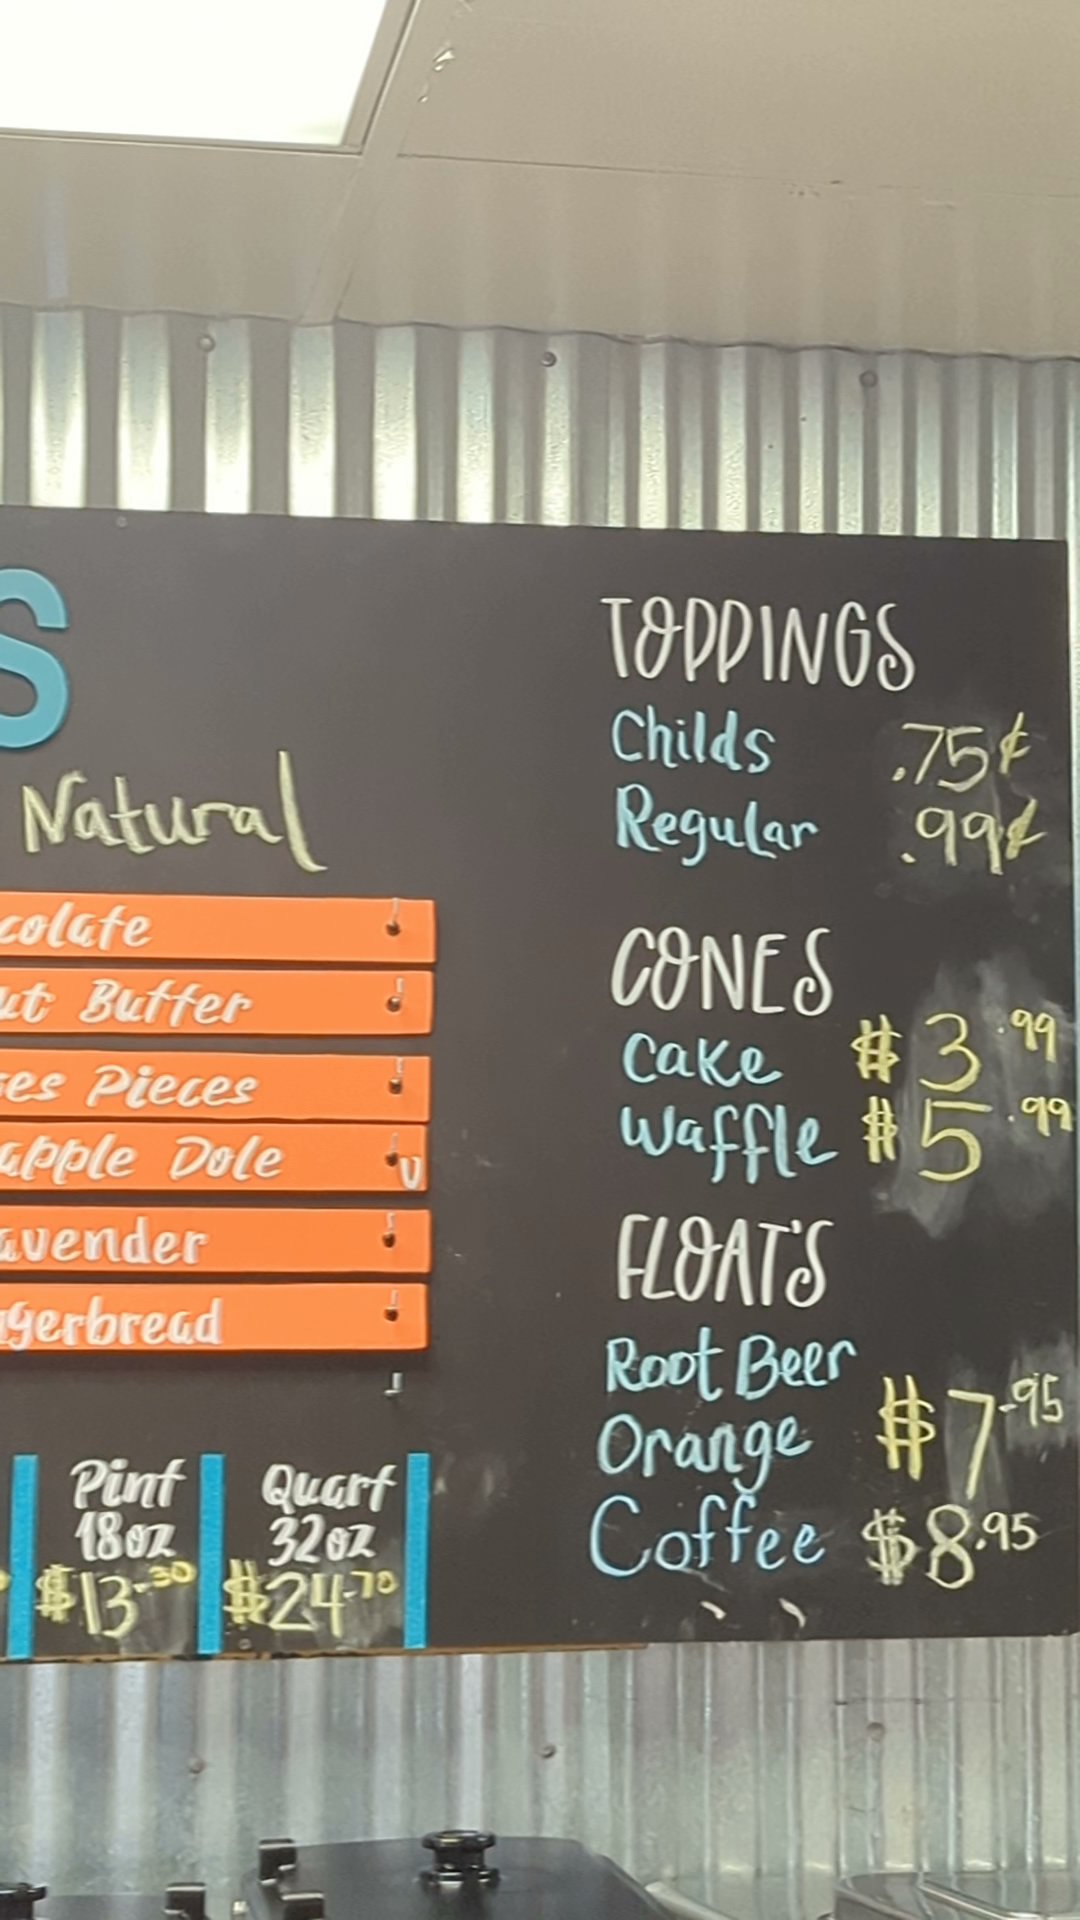 S
Natural
colate
ut Butter
ses Pieces
apple Dole V
avender
gerbread
Pint
18oz
$13.30
Quart
32oz
$24.70
TOPPINGS
Childs .75¢
Regular .99¢
CONES
Cake $3.99
Waffle $5.99
FLOAT'S
Root Beer
Orange $7.95
Coffee $8.95